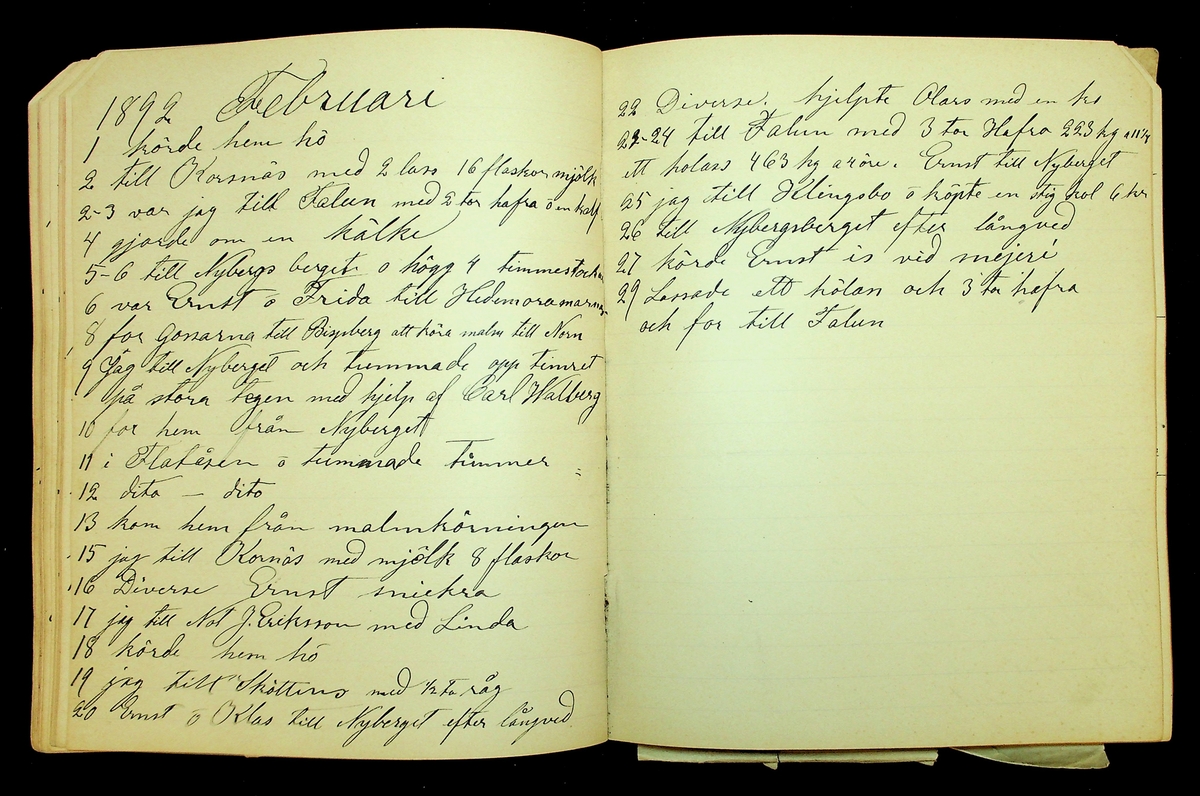 1892 Februari
1 körde hem hö
2 till Korsnäs med 2 lass 16 flaskor mjölk
2-3 var jag till Falun med 2 tor hafra o en kalf
4 gjorde om en kälke
5-6 till Nybergs berget o högg 4 timmerstockar
6 var Ernst o Frida till Hedemora marnan
8 for gossarna till Bispberg att köra malm till Norn
9 Jag till Nyberget och tummade opp timret
på stora tegen med hjelp af Carl Walberg
10 for hem från Nyberget
11 i Flatåsen o tummade timmer
12 dito - dito
13 kom hem från malmkörningen
15 jag till Kornäs med mjölk 8 flaskor
16 Diverse Ernst snickra
17 jag till Not J. Eriksson med Linda
18 körde hem hö
19 jag till Sköttens med 1/2 ta råg
20 Ernst o Klas till Nyberget efter långved
22 Diverse. hjelpte Olars med en ko
22-24 till Falun med 3 tor Hafra 223 kg a 11 1/4
ett holass 463 kg a öre. Ernst till Nyberget
25 jag till Klingsbo o köpte en stig kol 6 kr
26 till Nybergsberget efter långved
27 körde Ernst is vid mejeri
29 Lassade ett hölas och 3 ta hafra
och for till Falun